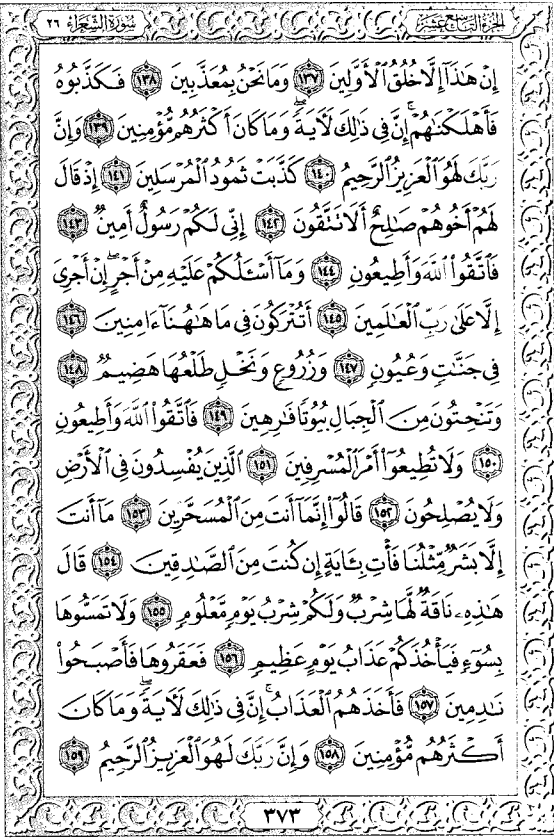 الجزء التاسع عشر
سورة الشعراء ٢٦
إِنْ هَٰذَآ إِلَّا خُلُقُ ٱلْأَوَّلِينَ ١٣٧ وَمَا نَحْنُ بِمُعَذَّبِينَ ١٣٨ فَكَذَّبُوهُ
فَأَهْلَكْنَٰهُمْ ۗ إِنَّ فِي ذَٰلِكَ لَآيَةً ۖ وَمَا كَانَ أَكْثَرُهُم مُّؤْمِنِينَ ١٣٩ وَإِنَّ
رَبَّكَ لَهُوَ ٱلْعَزِيزُ ٱلرَّحِيمُ ١٤٠ كَذَّبَتْ ثَمُودُ ٱلْمُرْسَلِينَ ١٤١ إِذْ قَالَ
لَهُمْ أَخُوهُمْ صَٰلِحٌ أَلَا تَتَّقُونَ ١٤٢ إِنِّي لَكُمْ رَسُولٌ أَمِينٌ ١٤٣
فَٱتَّقُوا۟ ٱللَّهَ وَأَطِيعُونِ ١٤٤ وَمَآ أَسْـَٔلُكُمْ عَلَيْهِ مِنْ أَجْرٍ ۖ إِنْ أَجْرِيَ
إِلَّا عَلَىٰ رَبِّ ٱلْعَٰلَمِينَ ١٤٥ أَتُتْرَكُونَ فِي مَا هَٰهُنَآ ءَامِنِينَ ١٤٦
فِي جَنَّٰتٍ وَعُيُونٍ ١٤٧ وَزُرُوعٍ وَنَخْلٍ طَلْعُهَا هَضِيمٌ ١٤٨
وَتَنْحِتُونَ مِنَ ٱلْجِبَالِ بُيُوتًا فَٰرِهِينَ ١٤٩ فَٱتَّقُوا۟ ٱللَّهَ وَأَطِيعُونِ
١٥٠ وَلَا تُطِيعُوٓا۟ أَمْرَ ٱلْمُسْرِفِينَ ١٥١ ٱلَّذِينَ يُفْسِدُونَ فِي ٱلْأَرْضِ
وَلَا يُصْلِحُونَ ١٥٢ قَالُوٓا۟ إِنَّمَآ أَنتَ مِنَ ٱلْمُسَحَّرِينَ ١٥٣ مَآ أَنتَ
إِلَّا بَشَرٌ مِّثْلُنَا فَأْتِ بِـَٔايَةٍ إِن كُنتَ مِنَ ٱلصَّٰدِقِينَ ١٥٤ قَالَ
هَٰذِهِۦ نَاقَةٌ لَّهَا شِرْبٌ وَلَكُمْ شِرْبُ يَوْمٍ مَّعْلُومٍ ١٥٥ وَلَا تَمَسُّوهَا
بِسُوٓءٍ فَيَأْخُذَكُمْ عَذَابُ يَوْمٍ عَظِيمٍ ١٥٦ فَعَقَرُوهَا فَأَصْبَحُوا۟
نَٰدِمِينَ ١٥٧ فَأَخَذَهُمُ ٱلْعَذَابُ ۗ إِنَّ فِي ذَٰلِكَ لَآيَةً ۖ وَمَا كَانَ
أَكْثَرُهُم مُّؤْمِنِينَ ١٥٨ وَإِنَّ رَبَّكَ لَهُوَ ٱلْعَزِيزُ ٱلرَّحِيمُ ١٥٩
٣٧٣